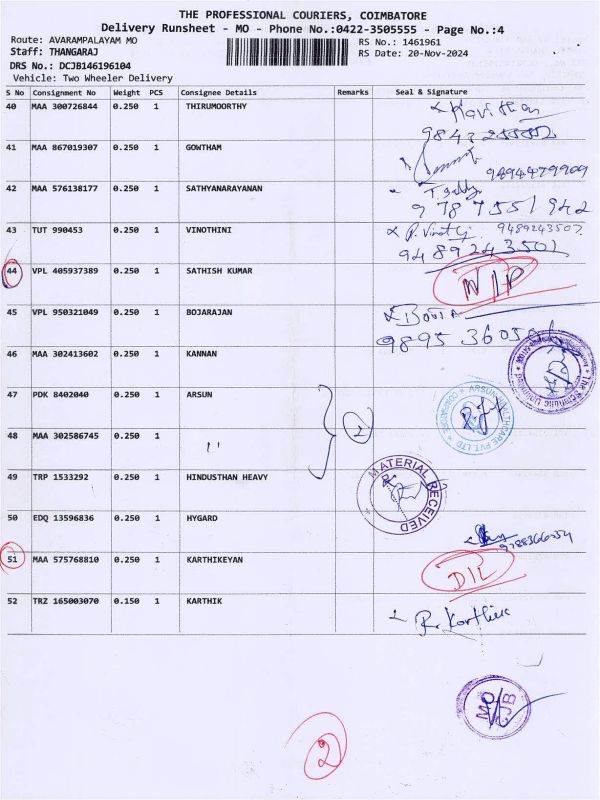 THE PROFESSIONAL COURIERS, COIMBATORE
Delivery Runsheet - MO - Phone No.:0422-3505555 - Page No.:4
Route: AVARAMPALAYAM MO RS No.: 1461961
Staff: THANGARAJ RS Date: 20-Nov-2024
DRS No.: DCJB146196104
Vehicle: Two Wheeler Delivery
S No Consignment No Weight PCS Consignee Details Remarks Seal & Signature
40 MAA 300726844 0.250 1 THIRUMOORTHY
41 MAA 867019307 0.250 1 GOWTHAM
9494479909
42 MAA 576138177 0.250 1 SATHYANARAYANAN
9787551942
43 TUT 990453 0.250 1 VINOTHINI
9489243501
44 VPL 405937389 0.250 1 SATHISH KUMAR
45 VPL 950321049 0.250 1 BOJARAJAN
46 MAA 302413602 0.250 1 KANNAN
47 PDK 8402040 0.250 1 ARSUN
48 MAA 302586745 0.250 1 "
2
49 TRP 1533292 0.250 1 HINDUSTHAN HEAVY
MATERIAL RECEIVED
50 EDQ 13596836 0.250 1 HYGARD
51 MAA 575768810 0.250 1 KARTHIKEYAN
DIL
52 TRZ 165003070 0.150 1 KARTHIK
R. Karthik
MO
JB
2